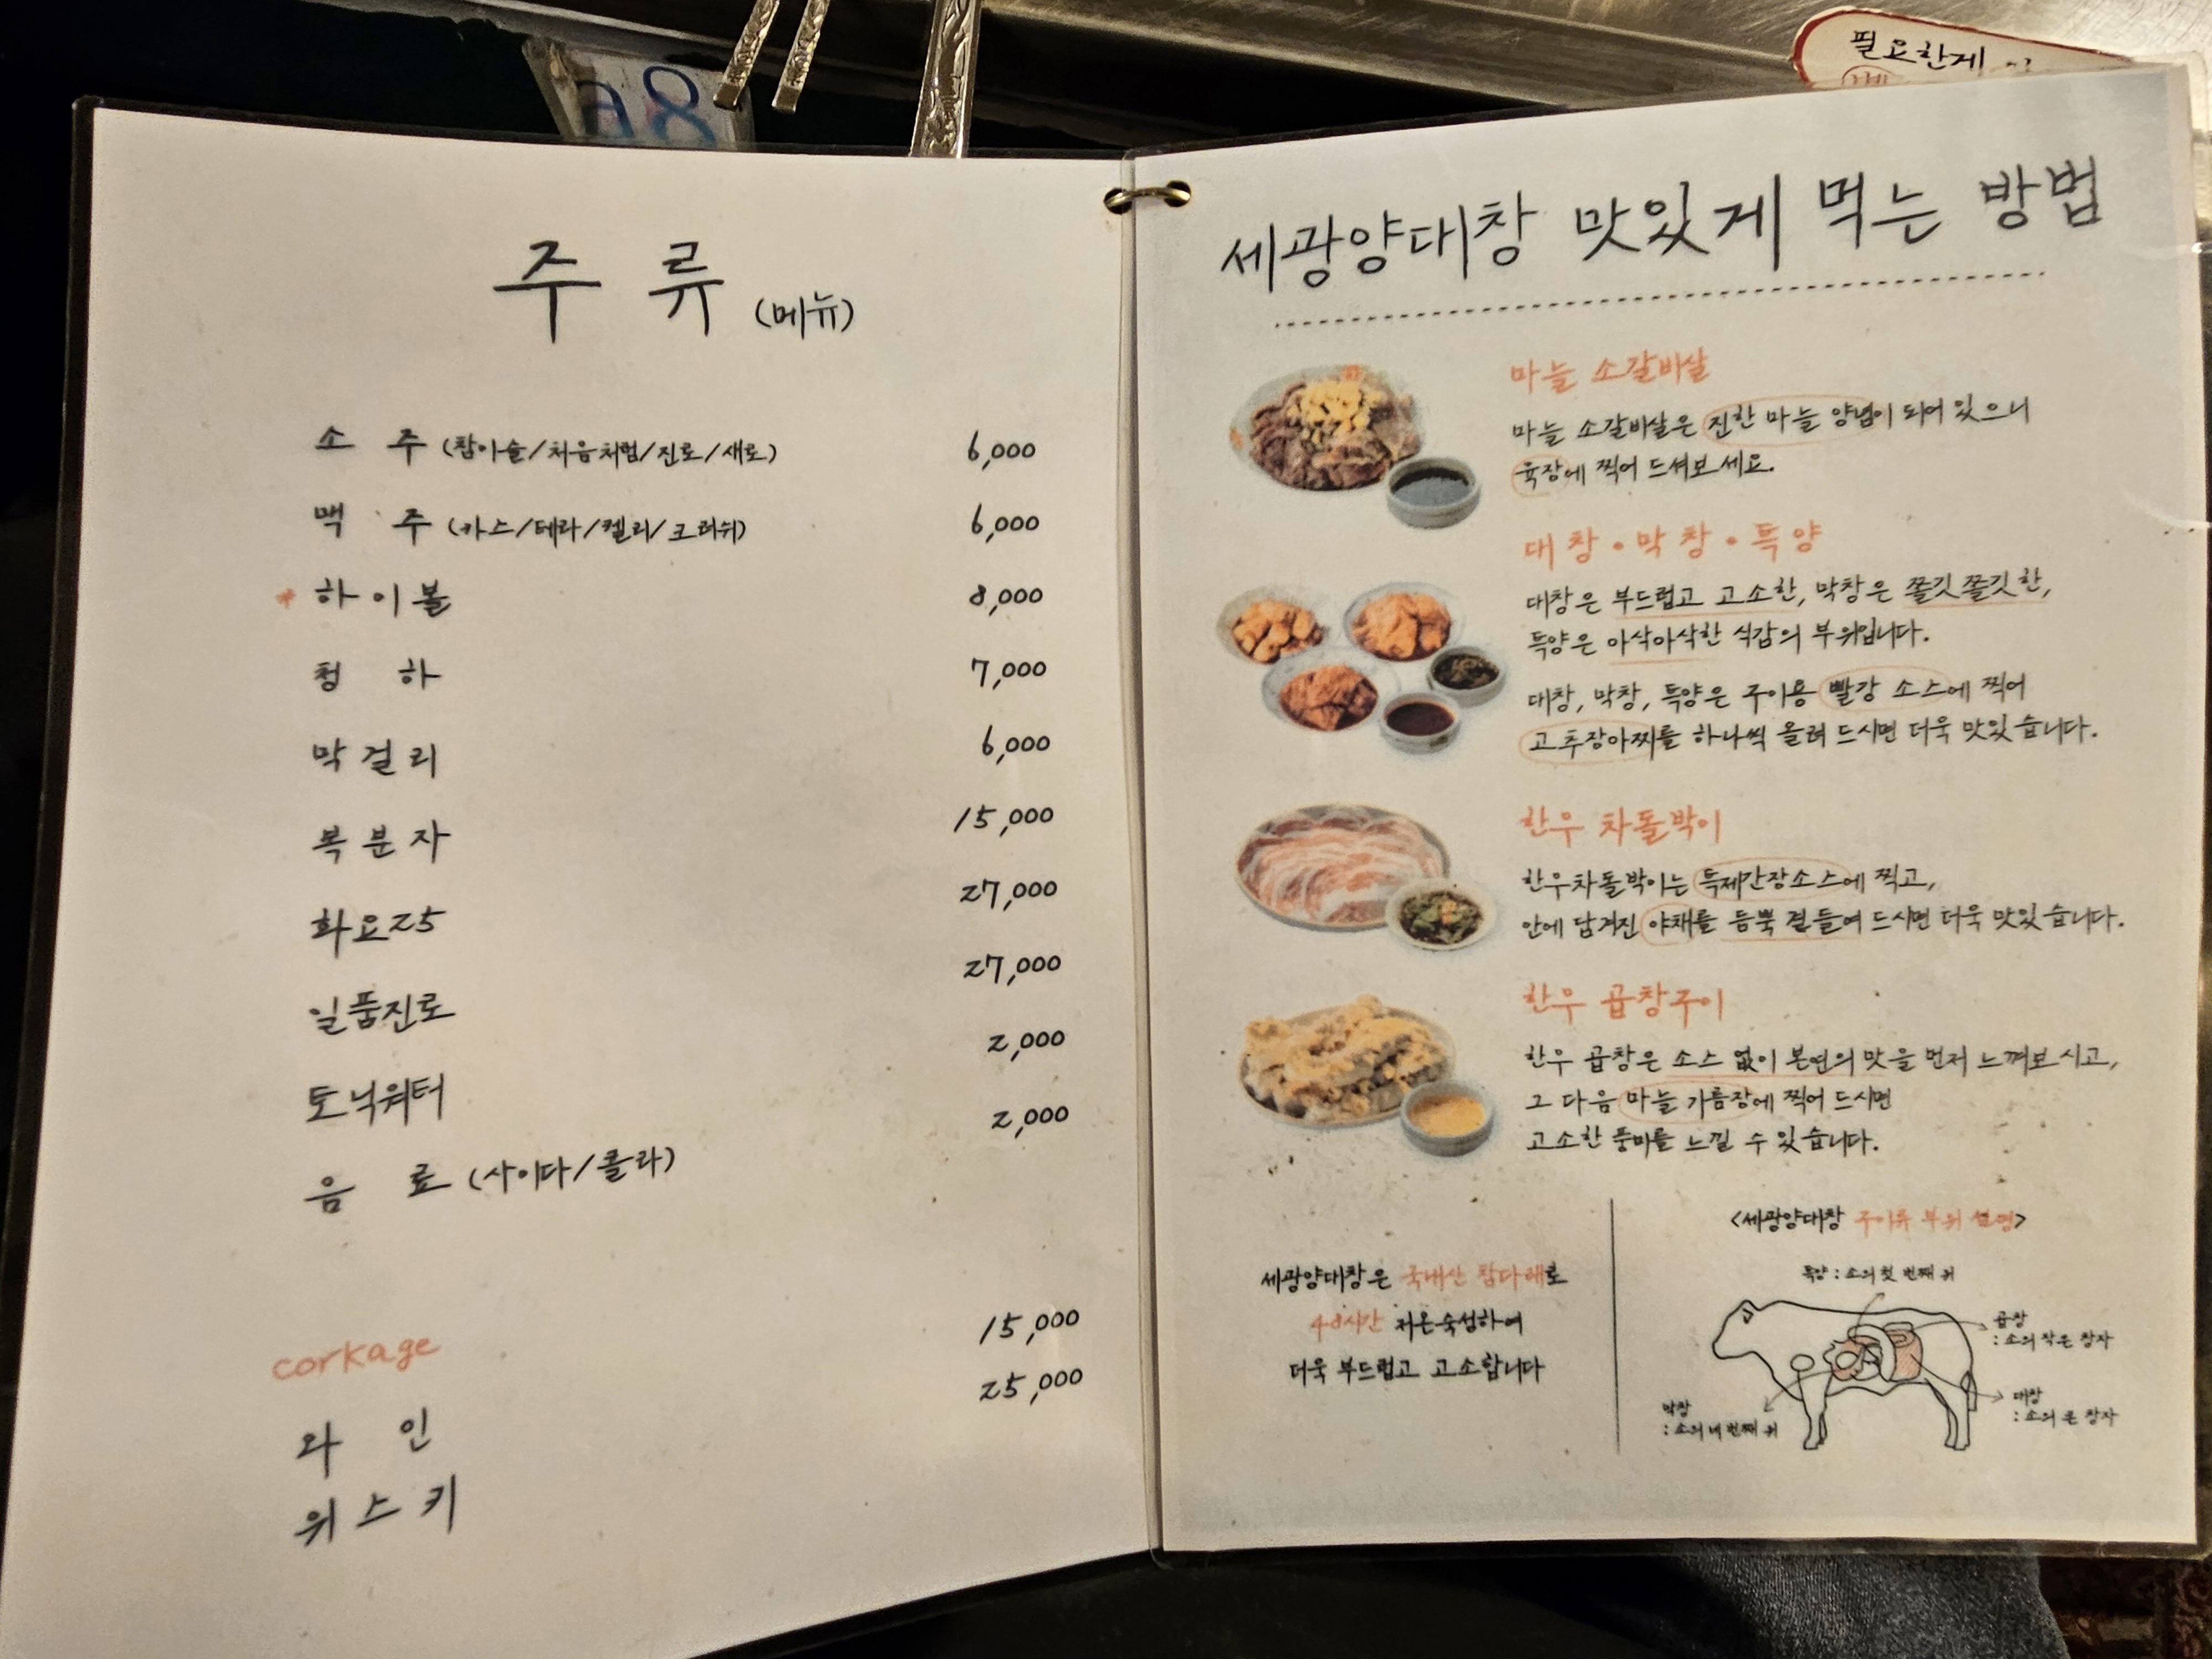 필요한게
주 류 (메뉴)
소 주 (참이슬/처음처럼/진로/새로) 6,000
맥 주 (카스/테라/켈리/크러쉬) 6,000
* 하이볼 8,000
청 하 7,000
막걸리 6,000
복분자 15,000
화요25 27,000
일품진로 27,000
토닉워터 2,000
음 료 (사이다/콜라) 2,000
corkage
와 인 15,000
위스키 25,000
세광양대창 맛있게 먹는 방법
마늘 소갈비살
마늘 소갈비살은 진한 마늘 양념이 되어 있으니
육장에 찍어 드셔보세요.
대창·막창·특양
대창은 부드럽고 고소한, 막창은 쫄깃쫄깃한,
특양은 아삭아삭한 식감의 부위입니다.
대창, 막창, 특양은 구이용 빨강 소스에 찍어
고추장아찌를 하나씩 올려 드시면 더욱 맛있습니다.
한우 차돌박이
한우차돌박이는 특제간장소스에 찍고,
안에 담겨진 야채를 듬뿍 곁들여 드시면 더욱 맛있습니다.
한우 곱창구이
한우 곱창은 소스 없이 본연의 맛을 먼저 느껴보시고,
그 다음 마늘 기름장에 찍어 드시면
고소한 풍미를 느낄 수 있습니다.
세광양대창은 국내산 참다래로
48시간 저온숙성하여
더욱 부드럽고 고소합니다
<세광양대창 구이류 부위 설명>
특양 : 소의 첫 번째 위
곱창
: 소의 작은 창자
대창
: 소의 큰 창자
막창
: 소의 네 번째 위